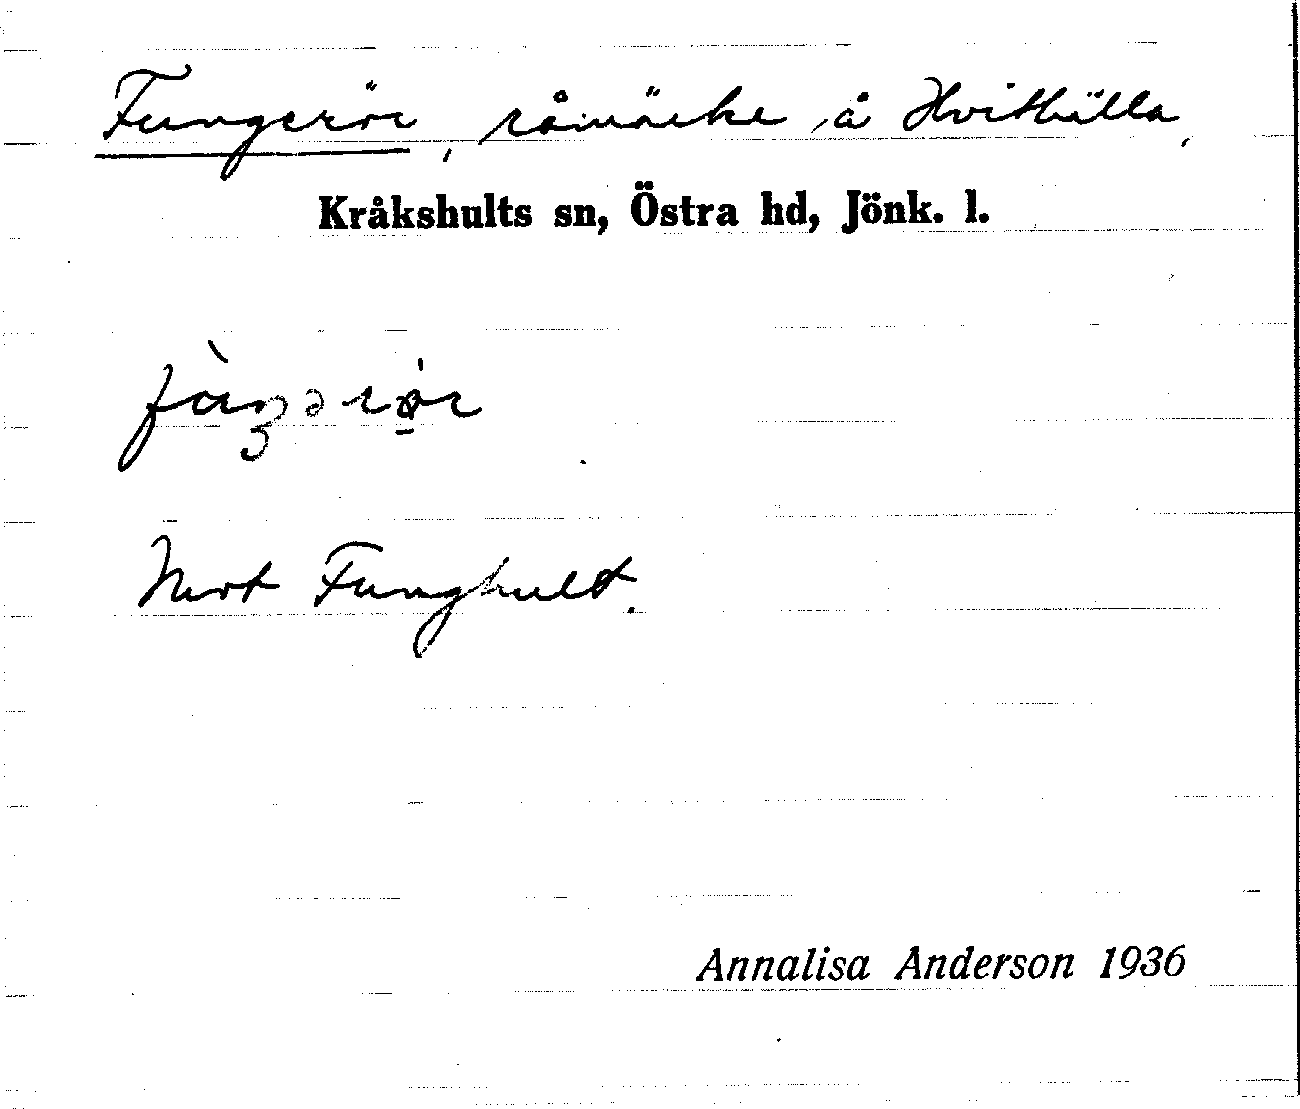 Fungerör, råmärke å Hvithälla,
Kråkshults sn, Östra hd, Jönk. l.
fàŋərǿ̱r
Mot Funghult.
Annalisa Anderson 1936